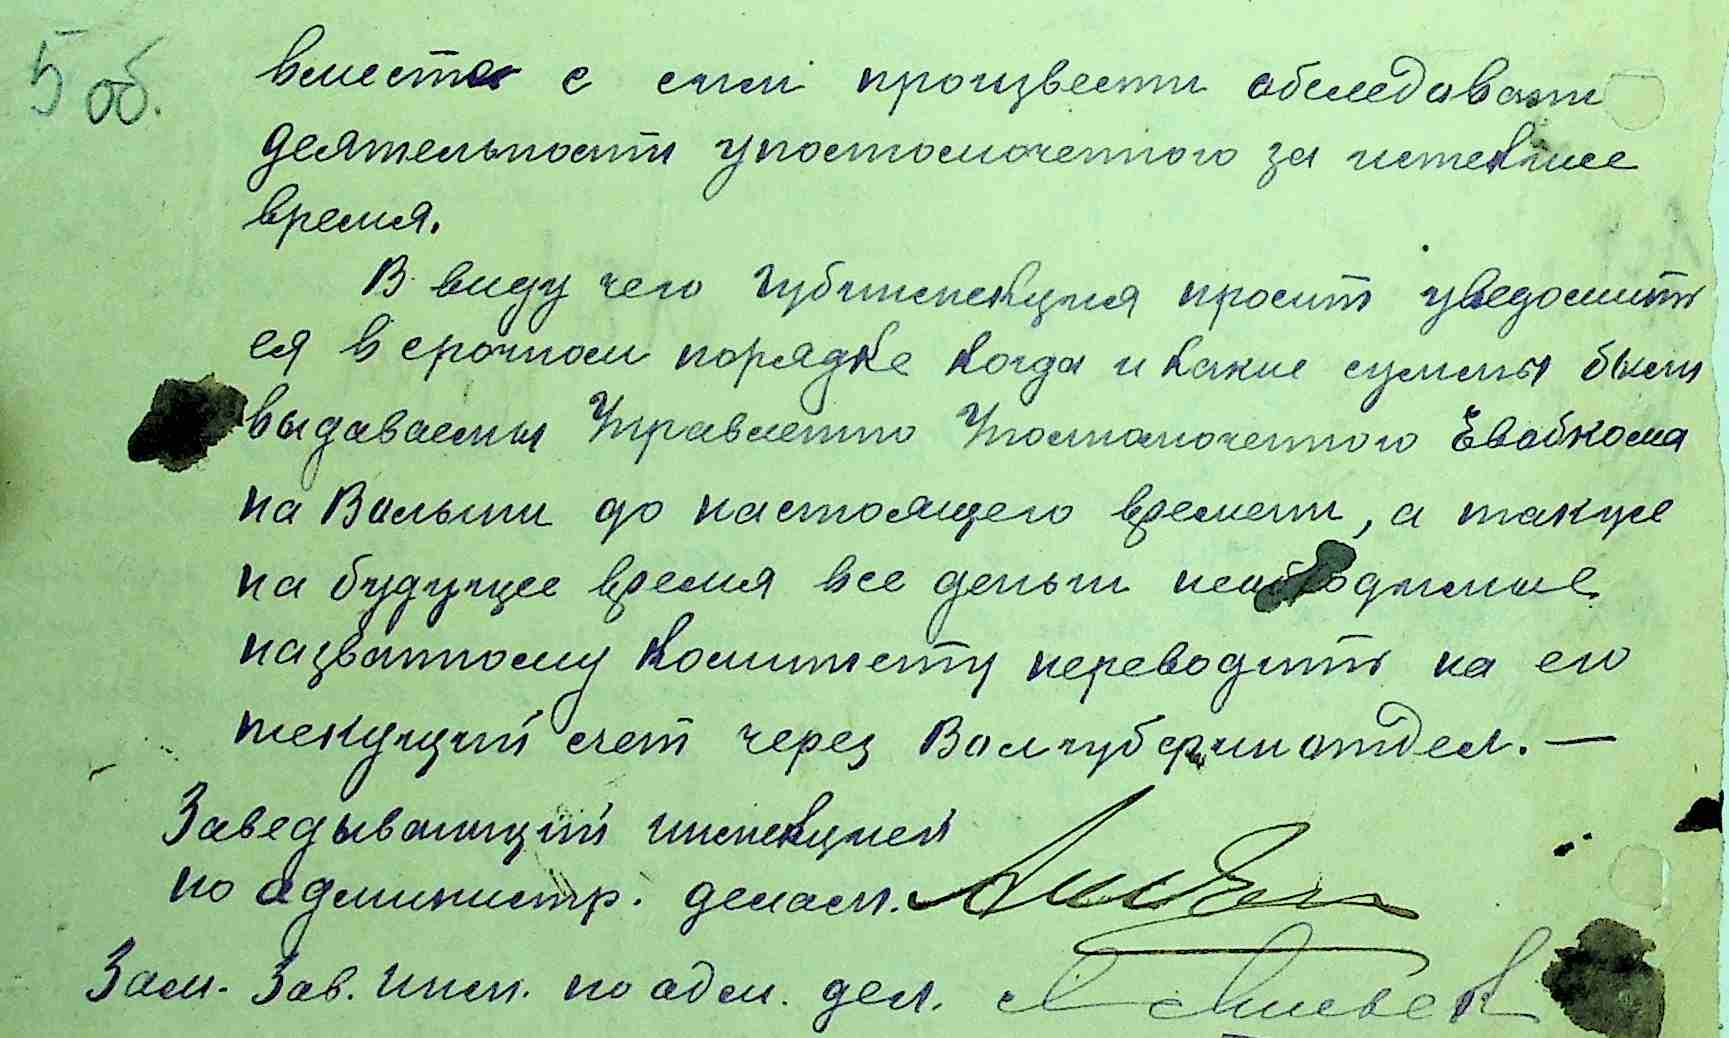 5 об.
вместе с сим произвести обследовани
деятельности уполномоченного за истекшее
время.
В виду чего Губинспекция просит уведомить
ея в срочном порядке когда и какие суммы были
выдаваемы Управлению Уполномоченного Евобкома
на Волыни до настоящего времени, а также
на будущее время все деньги необходимые
названному Комитету переводить на его
текущий счет через Волгубфинотдел. —
Заведывающий инспекцией
по администр. делам.
Зам. Зав. Инсп. по адм. дел.